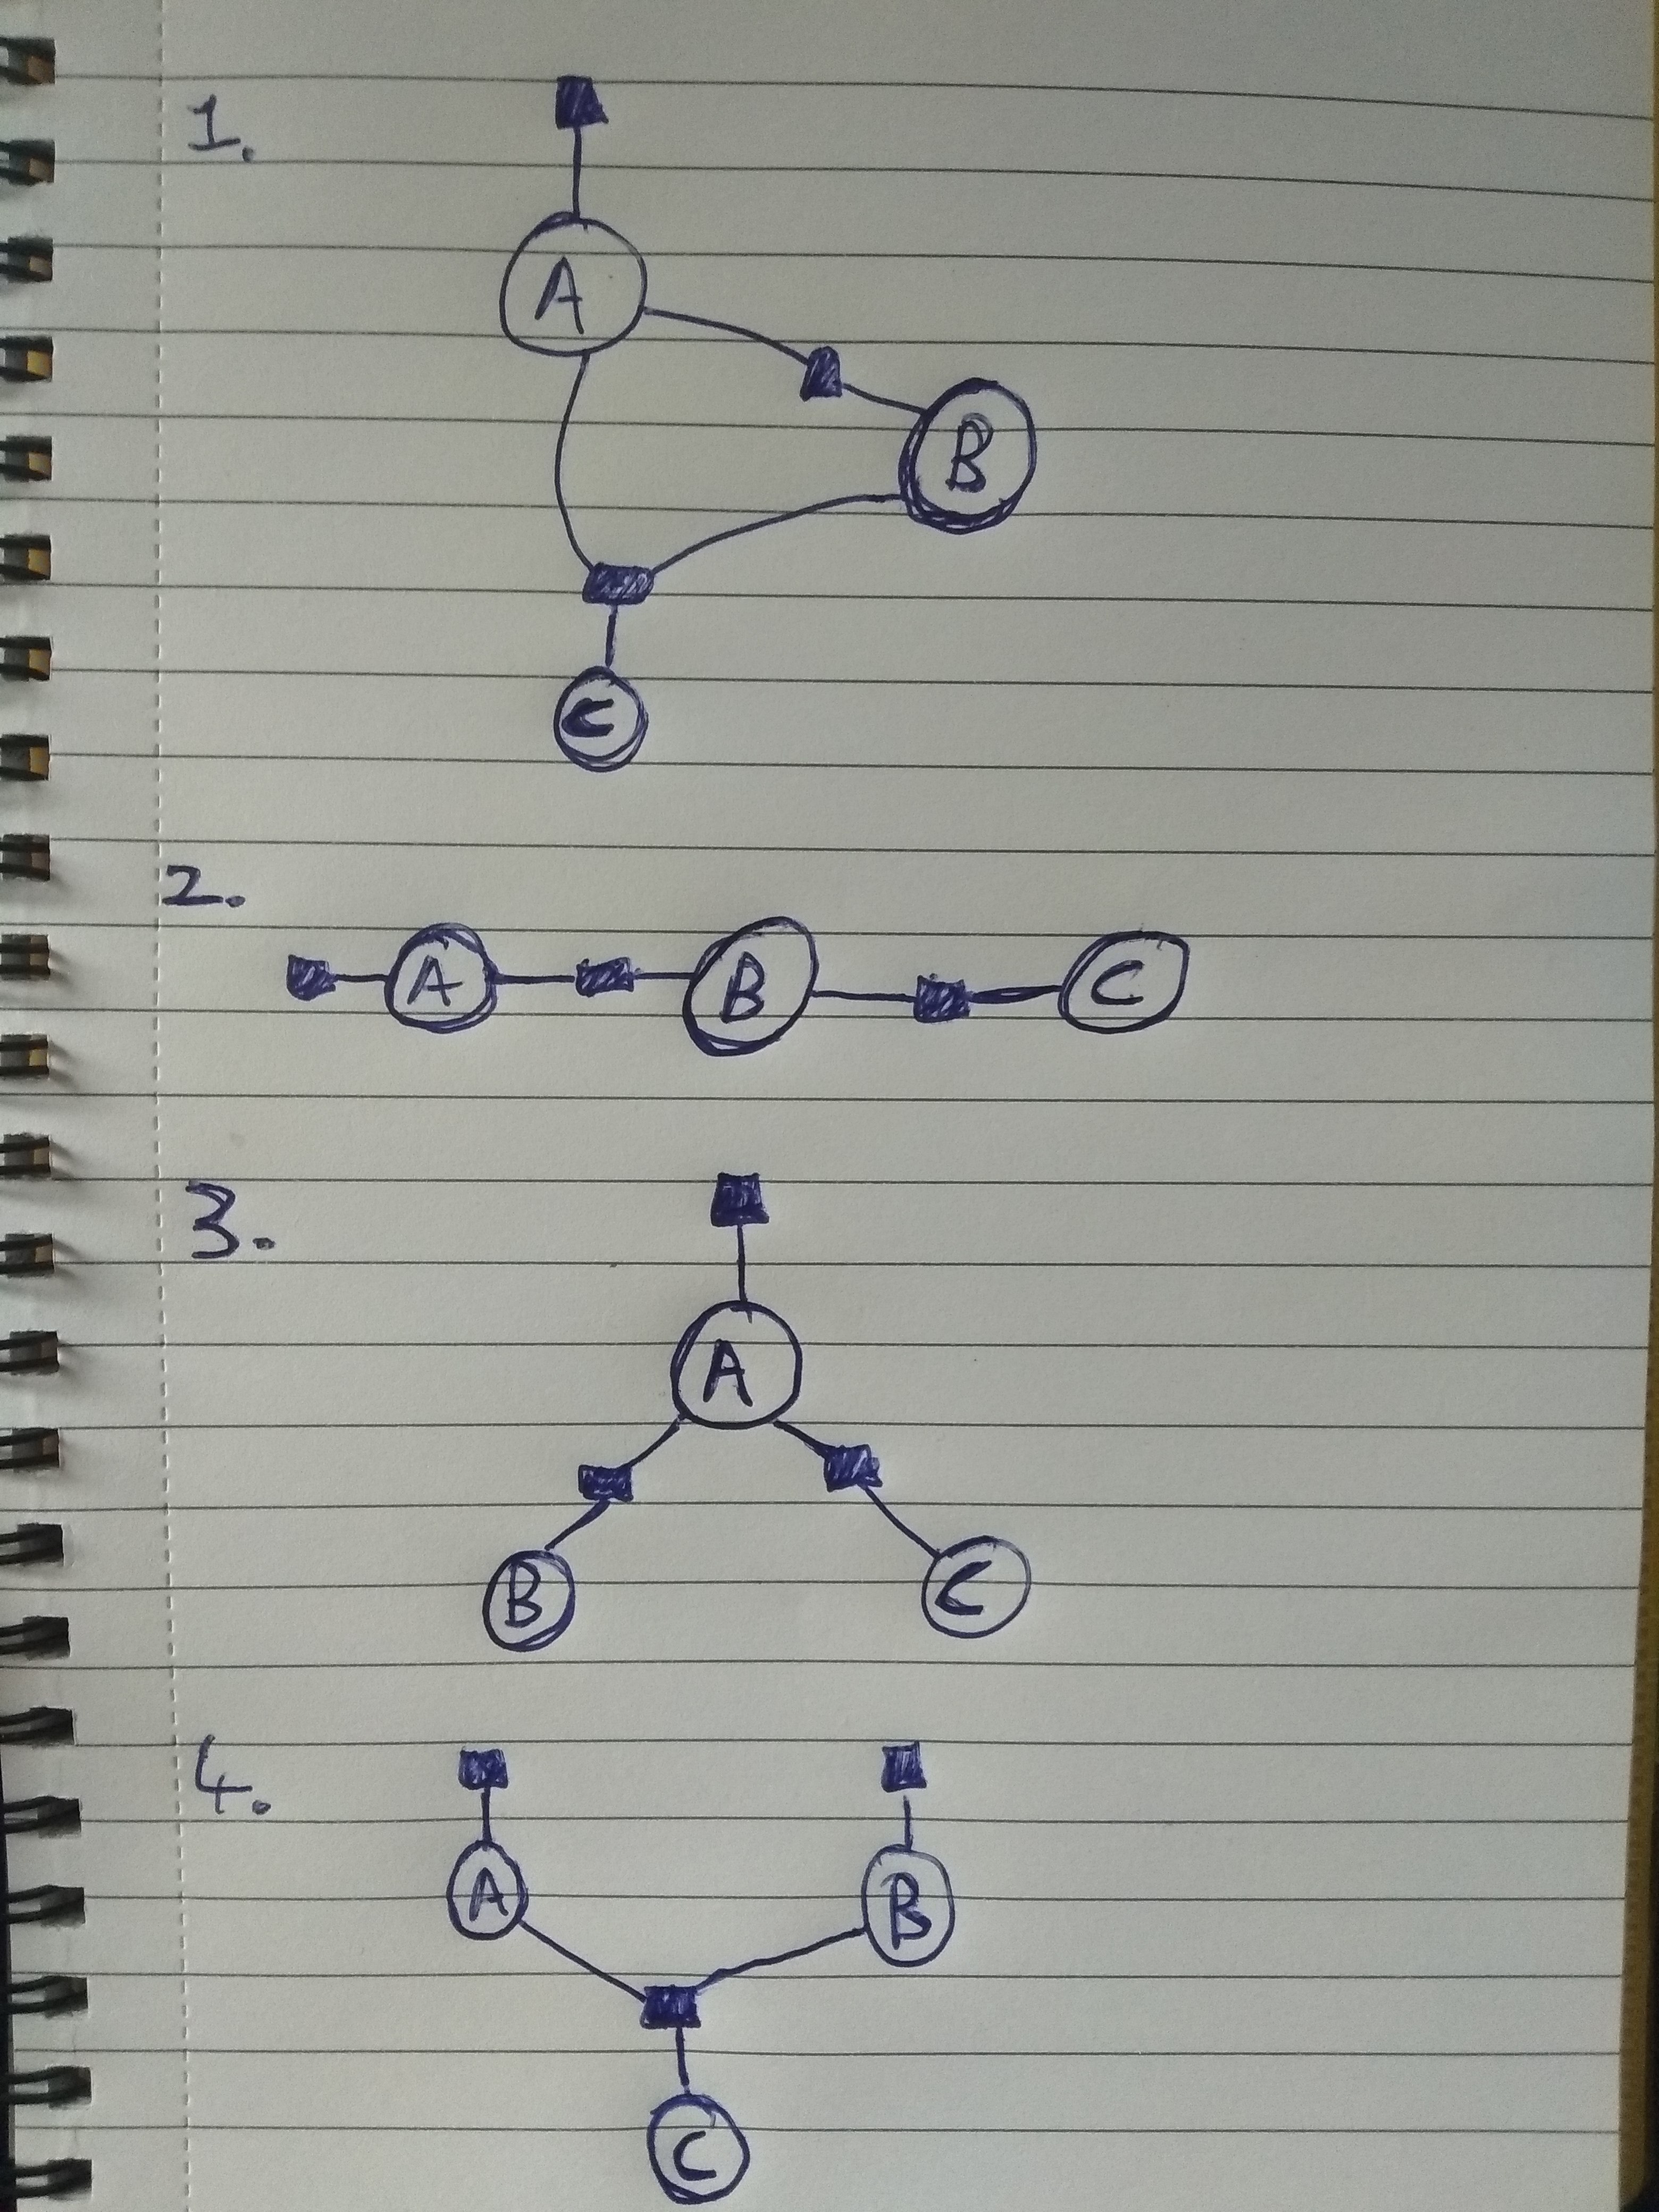 1.
A
B
C
2.
A B C
3.
A
B C
4.
A B
C